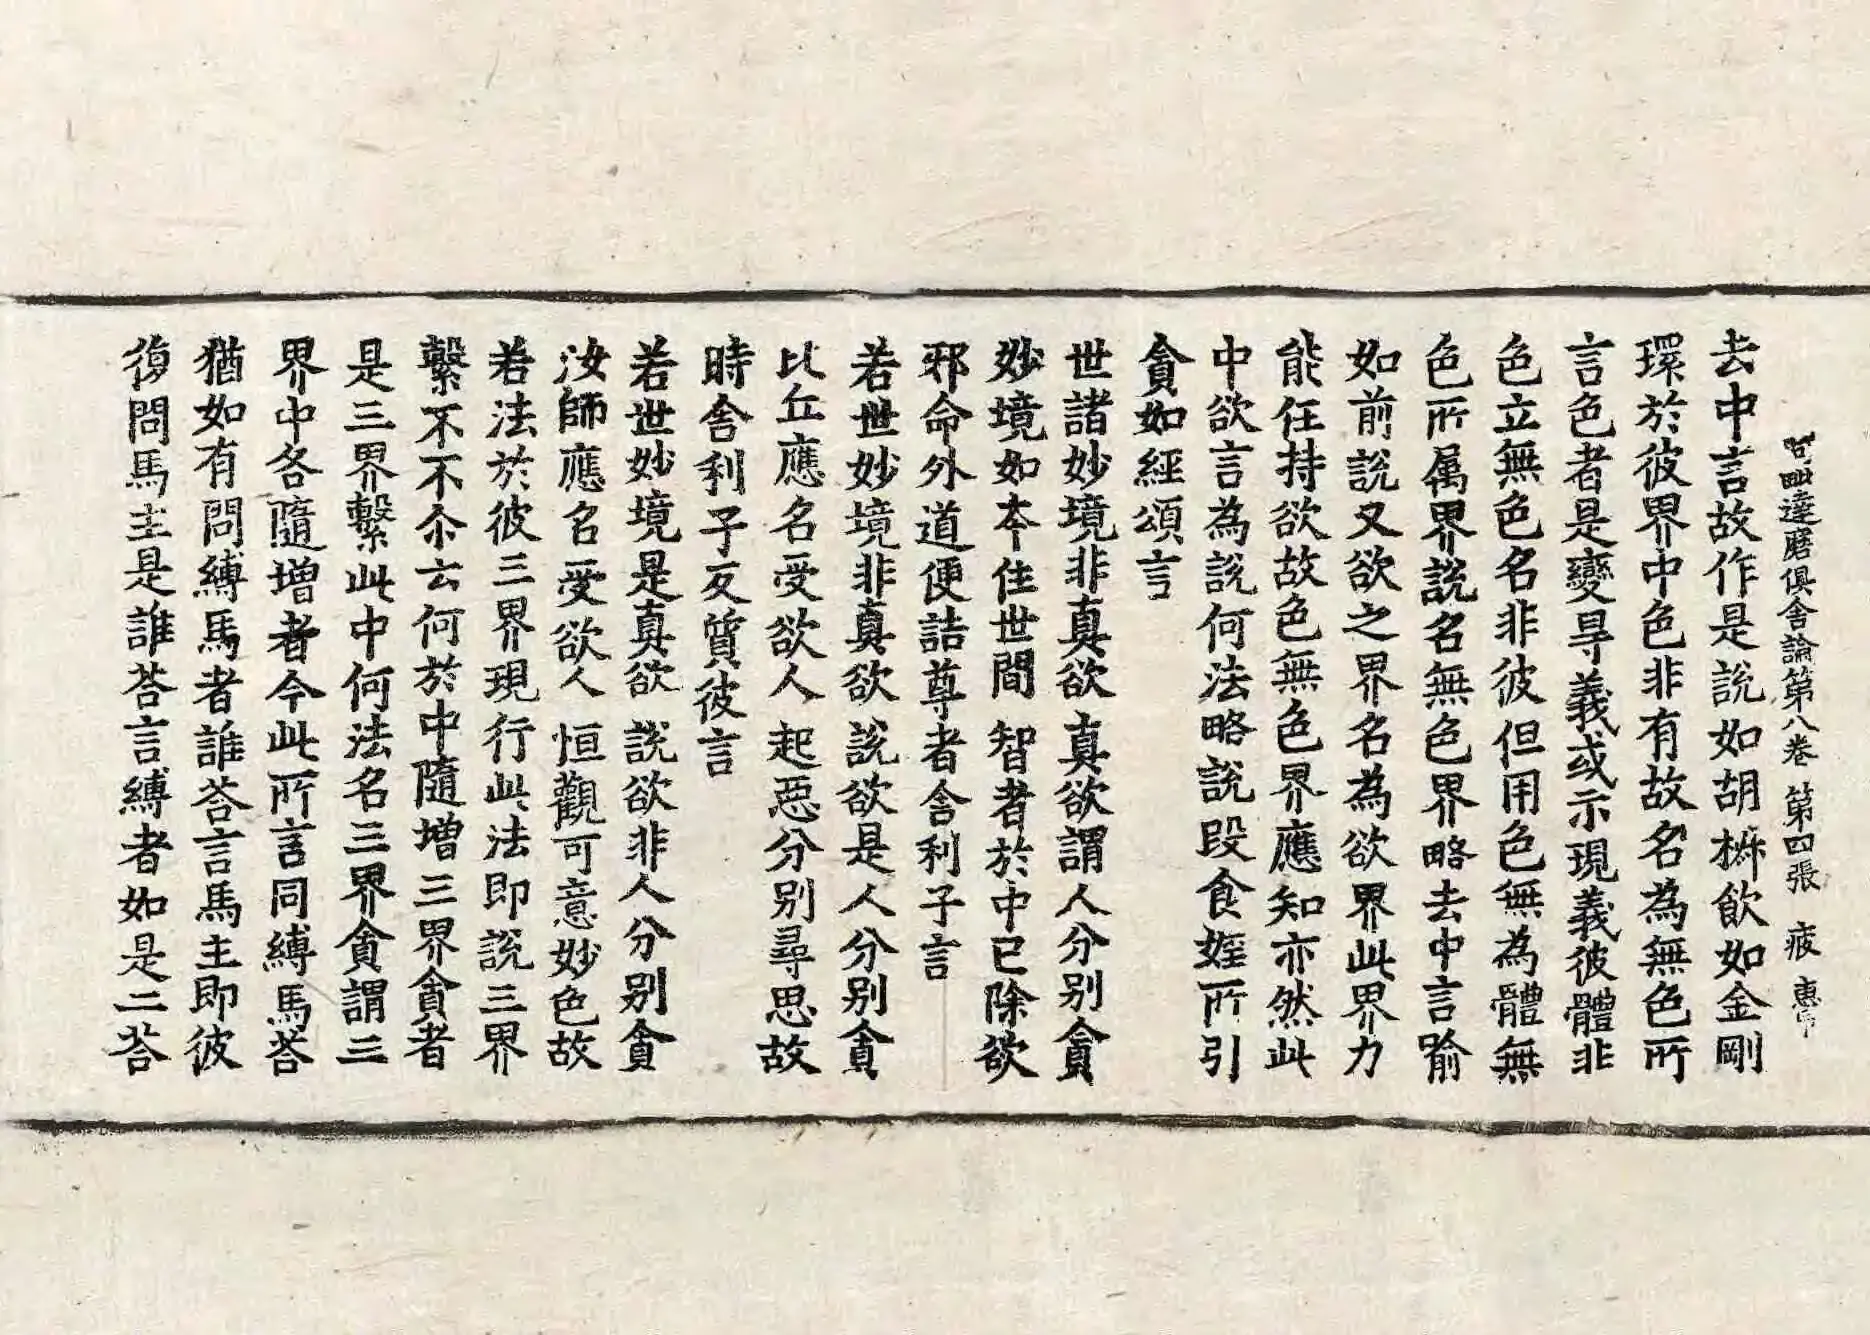 阿毗達磨俱舍論第八卷 第四張 疲 惠
去中言故作是說如胡椒飲如金剛
環於彼界中色非有故名為無色所
言色者是變㝵義或示現義彼體非
色立無色名非彼但用色無為體無
色所属界說名無色界略去中言喻
如前說又欲之界名為欲界此界力
能任持欲故色無色界應知亦然此
中欲言為說何法略說段食婬所引
貪如經頌言
世諸妙境非真欲 真欲謂人分別貪
妙境如夲住世間 智者於中已除欲
邪命外道便詰尊者舍利子言
若世妙境非真欲 說欲是人分別貪
比丘應名受欲人 起惡分別尋思故
時舍利子反質彼言
若世妙境是真欲 說欲非人分別貪
汝師應名受欲人 恒觀可意妙色故
若法於彼三界現行此法即說三界
繫不不尒云何於中隨增三界貪者
是三界繫此中何法名三界貪謂三
界中各隨增者今此所言同縛馬荅
猶如有問縛馬者誰荅言馬主即彼
復問馬主是誰荅言縛者如是二荅